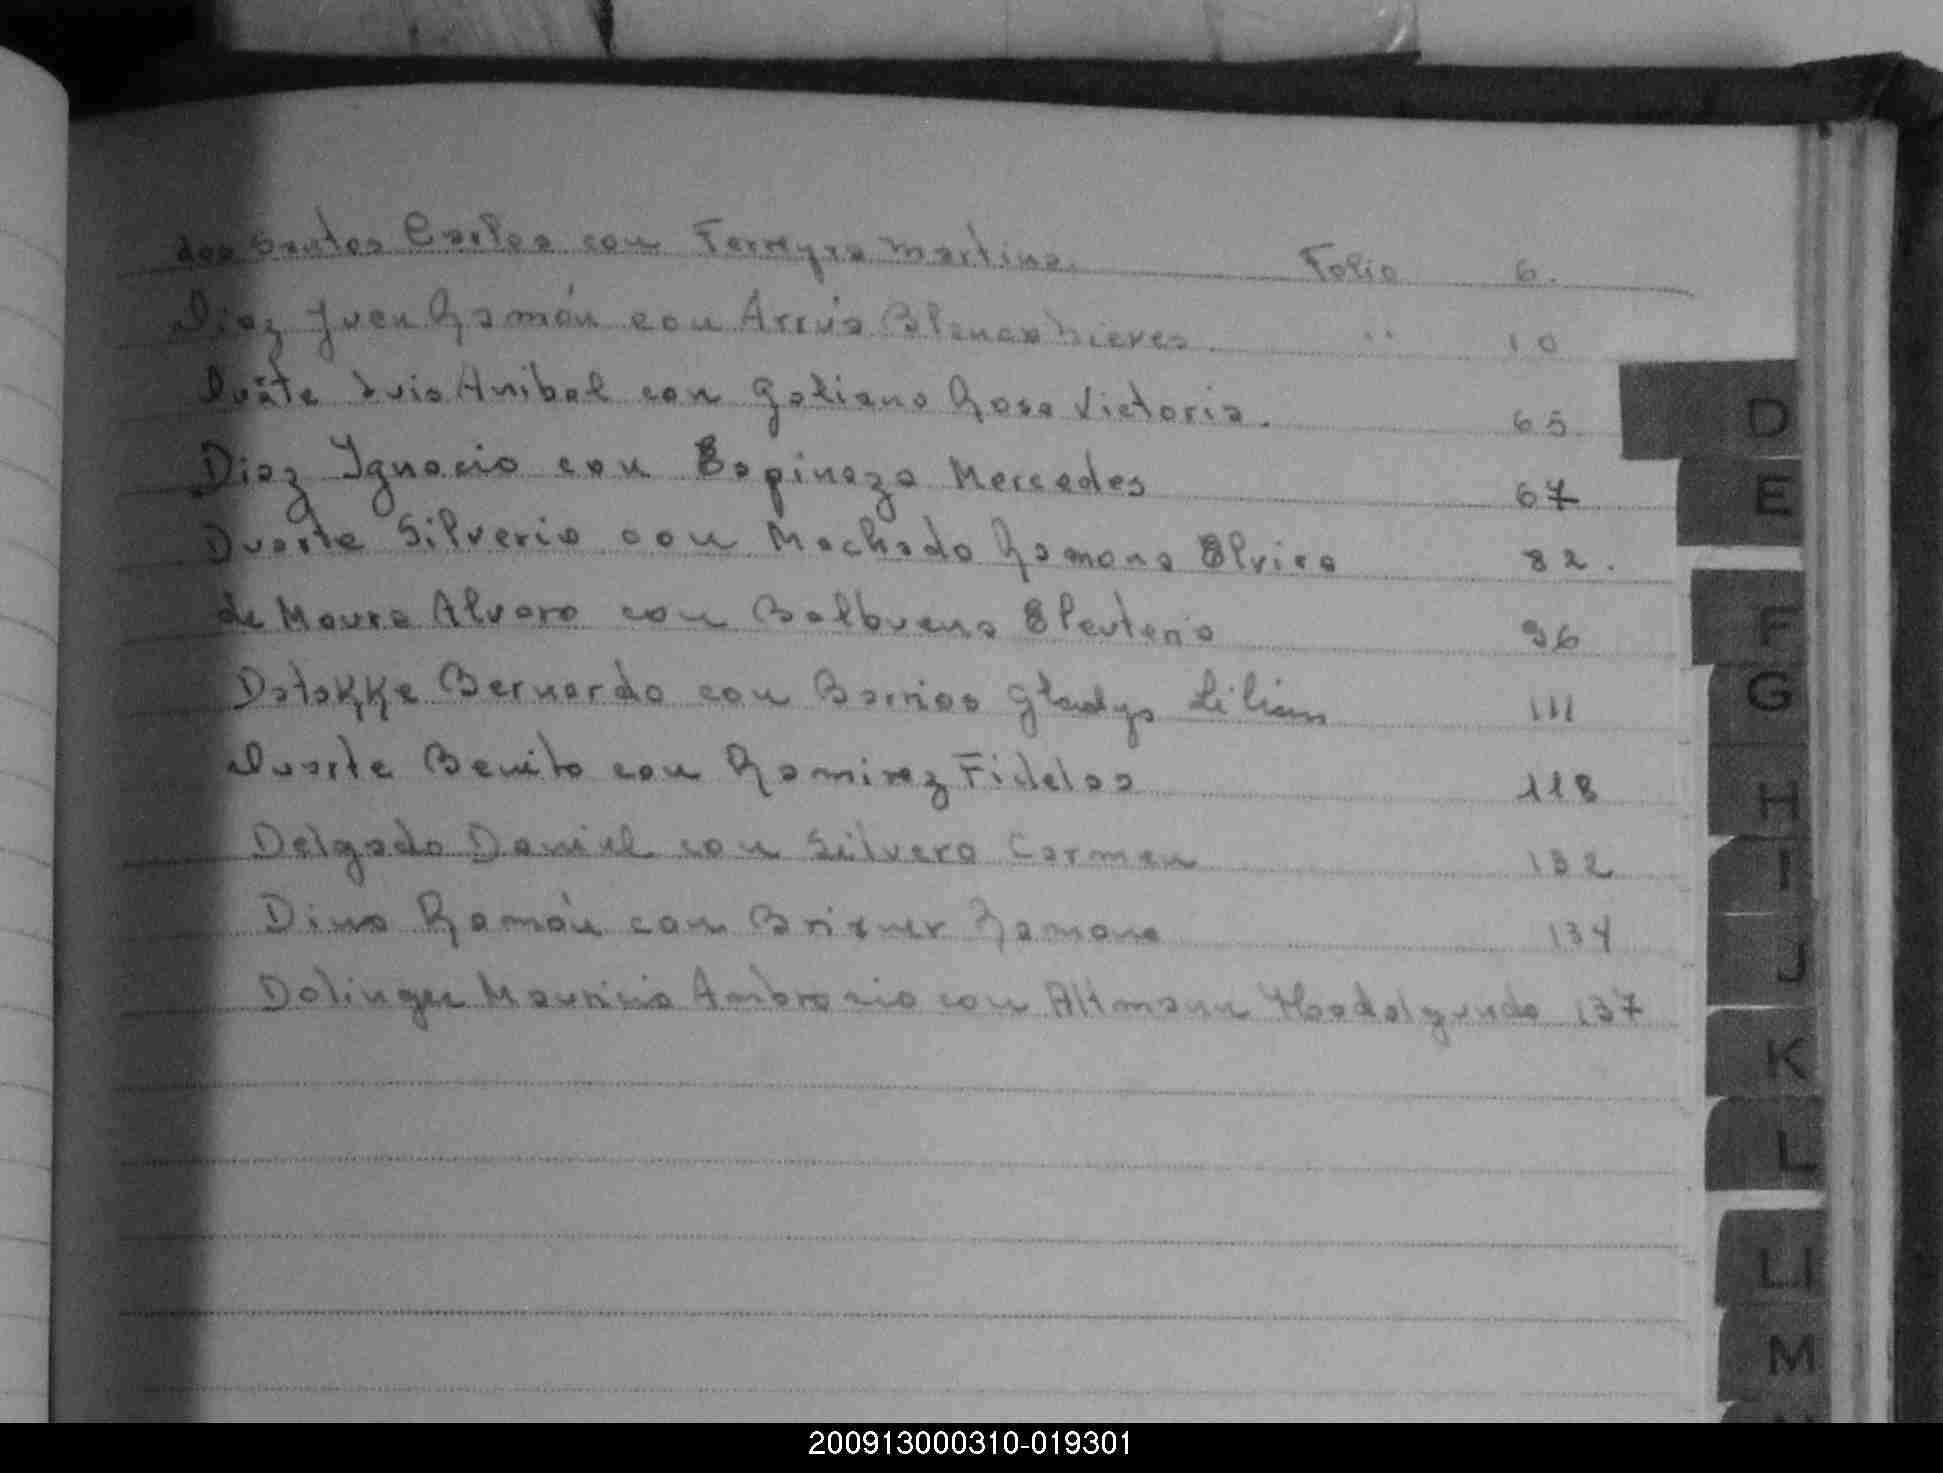 dos Santos Carlos con Ferreyra Martina. Folio 6.
Diaz Juan Ramón con Arrúa Blanca Nieves. " 10
Duarte Luis Anibal con Galiano Rosa Victoria. 65
Diaz Ignacio con Espinoza Mercedes 67
Duarte Silverio con Machado Ramona Elvira 82.
de Moura Alvaro con Balbuena Eleuteria 96
Datokke Bernardo con Barrios Gladys Lilian 111
Duarte Benito con Ramirez Fidelsa 118
Delgado Daniel con Silvero Carmen 132
Dino Ramón con Brixner Ramona 134
Dolinger Mauricio Ambrosio con Altmann 137
D
E
F
G
H
I
J
K
L
LI
M
200913000310-019301